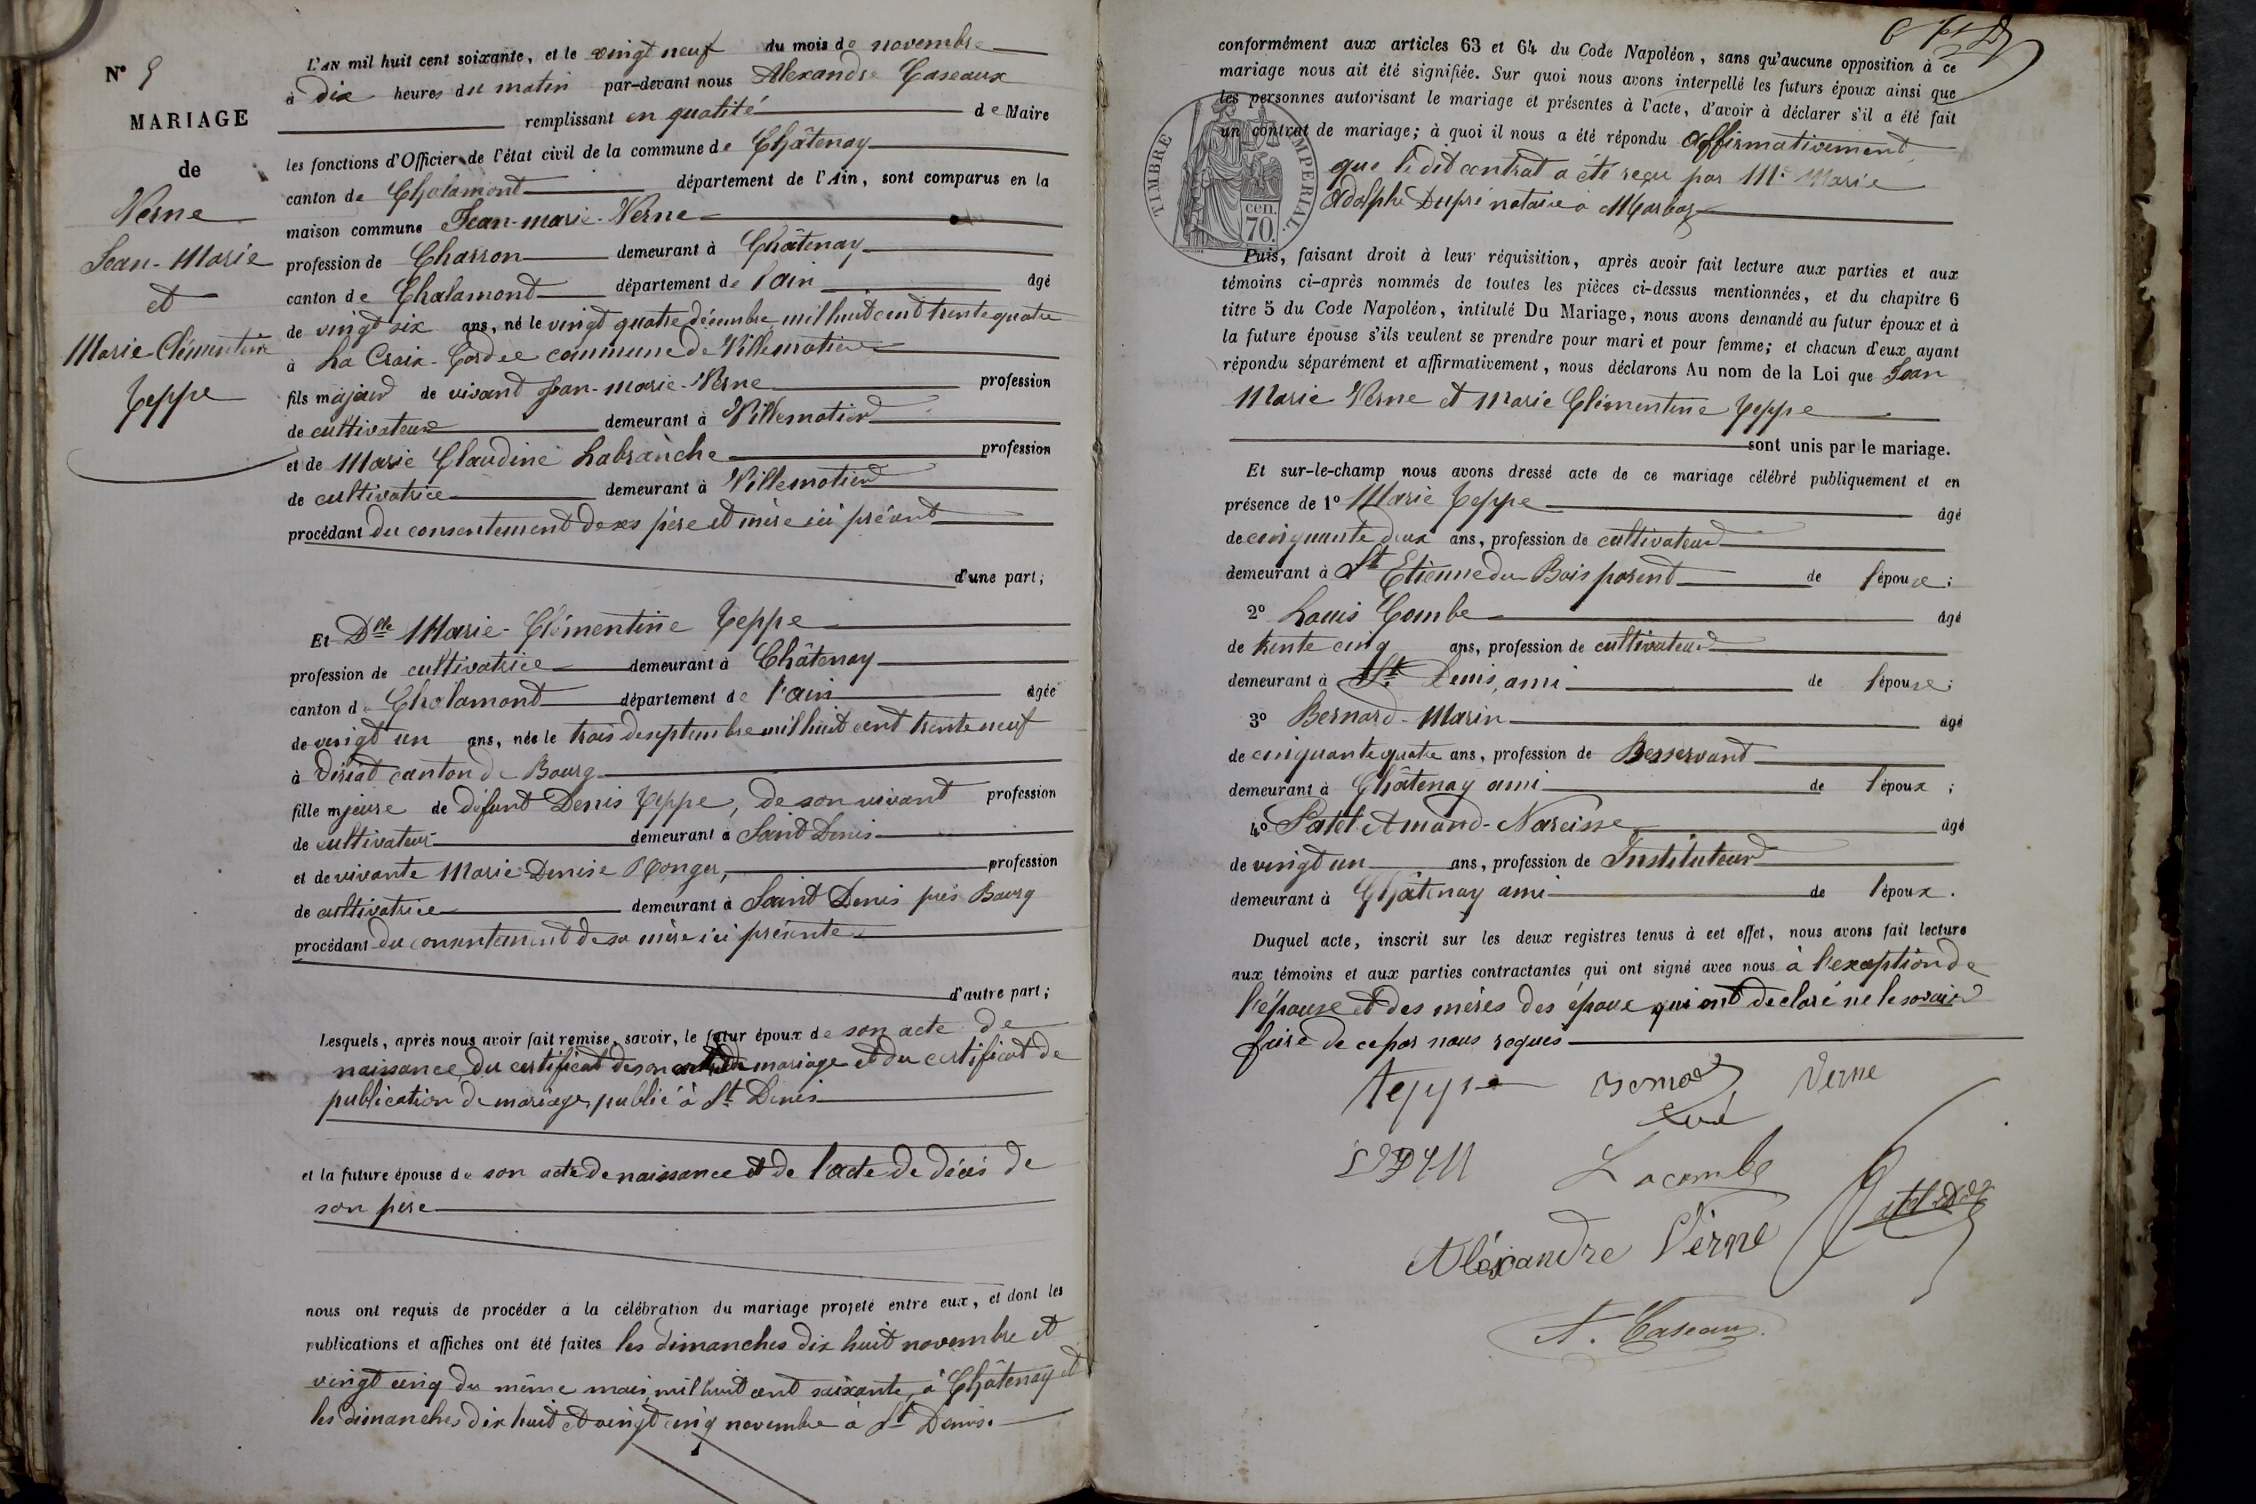 N° 9
MARIAGE
de
Verne
Jean-Marie
et
Marie-Clémentine
Teppe
L'AN mil huit cent soixante, et le vingt neuf du mois de novembre
à dix heures du matin par-devant nous Alexandre Caseaux
remplissant en qualité de Maire
les fonctions d'Officier de l'état civil de la commune de Châtenay
canton de Chalamont département de l'Ain, sont comparus en la
maison commune Jean-marie-Verne
profession de Charron demeurant à Châtenay
canton de Chalamont département de l'ain âgé
de vingt six ans, né le vingt quatre décembre mil huit cent trente quatre
à La Croix-Cordée commune de Villemotier
fils majeur de vivant Jean-marie-Verne profession
de cultivateur demeurant à Villemotier
et de Marie Claudine Labranche profession
de cultivatrice demeurant à Villemotier
procédant du consentement de ses père et mère ici présent
d'une part;
Et Dlle Marie-Clémentine Teppe
profession de cultivatrice demeurant à Châtenay
canton de Chalamont département de l'ain âgée
de vingt un ans, née le trois de septembre mil huit cent trente neuf
à Viriat canton de Bourg
fille mjeure de défunt Denis Teppe, de son vivant profession
de cultivateur demeurant à Saint Denis
et de vivante Marie Denise Ronger, profession
de cultivatrice demeurant à Saint Denis près Bourg
procédant du consentement de sa mère ici présente
d'autre part;
Lesquels, après nous avoir fait remise, savoir, le futur époux de son acte de
naissance, du certificat de son mariage et du certificat de
publication de mariage, publié à St Denis
et la future épouse de son acte de naissance et de l'acte de décès de
son père
nous ont requis de procéder à la célébration du mariage projeté entre eux, et dont les
publications et affiches ont été faites les dimanches dix huit novembre et
vingt cinq du même mois, mil huit cent soixante, à Châtenay et
les dimanches dix huit et vingt cinq novembre à St Denis.
conformément aux articles 63 et 64 du Code Napoléon, sans qu'aucune opposition à ce
mariage nous ait été signifiée. Sur quoi nous avons interpellé les futurs époux ainsi que
les personnes autorisant le mariage et présentes à l'acte, d'avoir à déclarer s'il a été fait
un contrat de mariage; à quoi il nous a été répondu affirmativement,
que le dit contrat a été reçu par Me Marie
Adolphe Dupré notaire à Marboz
TIMBRE IMPERIAL.
cen.
70.
Puis, faisant droit à leur réquisition, après avoir fait lecture aux parties et aux
témoins ci-après nommés de toutes les pièces ci-dessus mentionnées, et du chapitre 6
titre 5 du Code Napoléon, intitulé Du Mariage, nous avons demandé au futur époux et à
la future épouse s'ils veulent se prendre pour mari et pour femme; et chacun d'eux ayant
répondu séparément et affirmativement, nous déclarons Au nom de la Loi que Jean
Marie Verne et Marie Clémentine Teppe
sont unis par le mariage.
Et sur-le-champ nous avons dressé acte de ce mariage célébré publiquement et en
présence de 1° Marie Teppe âgé
de cinquante deux ans, profession de cultivateur
demeurant à St Etienne du Bois parent de l'épouse;
2° Louis Combe âgé
de trente cinq ans, profession de cultivateur
demeurant à St Denis, ami de l'épouse;
3° Bernard-Marin âgé
de cinquante quatre ans, profession de Desservant
demeurant à Châtenay ami de l'époux;
4° Patel Amand-Narcisse âgé
de vingt un ans, profession de Instituteur
demeurant à Châtenay ami de l'époux.
Duquel acte, inscrit sur les deux registres tenus à cet effet, nous avons fait lecture
aux témoins et aux parties contractantes qui ont signé avec nous à l'exception de
l'épouse et des mères des époux qui ont declaré ne le savoir
faire de ce par nous requis
teppe Bernard Verne
curé
Lacombe
Aléxandre Vérne
A. Caseaux